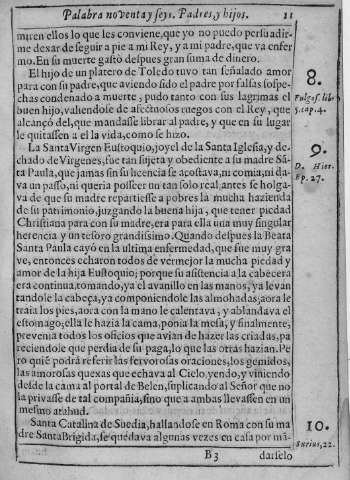 Palabra noventa y seys. Padres, y hijos. 11
miren ellos lo que les conviene, que yo no puedo persuadir-
me dexar de seguir a pie a mi Rey, y a mi padre, que va enfer
mo. En su muerte gastò despues gran suma de dinero.
El hijo de un platero de Toledo tuvo tan señalado amor
para con su padre, que aviendo sido el padre por falsas sospe-
chas condenado a muerte, pudo tanto con sus lagrimas el
buen hijo, valiendose de afectuosos ruegos con el Rey, que
alcançò del, que mandasse librar al padre, y que en su lugar
le quitassen a el la vida, como se hizo.
8.
Fulgos. lib.
5. cap. 4.
La Santa Virgen Eustoquio, joyel de la Santa Iglesia, y de
chado de Virgenes, fue tan sujeta y obediente a su madre Sã
ta Paula, que jamas sin su licencia se acostava, ni comia, ni da
va un passo, ni queria posseer un tan solo real, antes se holga-
va de que su madre repartiesse a pobres la mucha hazienda
de su patrimonio, juzgando la buena hija, que tener piedad
Christiana para con su madre, era para ella una muy singular
herencia y un tesoro grandissimo. Quando despues la Beata
Santa Paula cayò en la ultima enfermedad, que fue muy gra
ve, entonces echaron todos de ver mejor la mucha piedad y
amor de la hija Eustoquio; porque su asistencia a la cabecera
era continua, tomando, ya el avanillo en las manos, ya levan
tandole la cabeça, ya componiendole las almohadas; aora le
traia los pies, aora con la mano le calentava, y ablandava el
estomago; ella le hazia la cama, ponia la mesa, y finalmente,
prevenia todos los oficios que avian de hazer las criadas, pa
reciendole que perdia de su paga, lo que las otras hazian. Pe
ro quiẽ podrà referir las fervorosas oraciones, los gemidos,
las amorosas quexas que echava al Cielo, yendo, y viniendo
desde la cama al portal de Belen, suplicando al Señor que no
la privasse de tal compañia, sino que a ambas llevassen en un
mesmo atahud.
9.
D. Hier.
Ep. 27.
Santa Catalina de Suedia, hallandose en Roma con su ma
dre Santa Brigida, se quedava algunas vezes en casa por mã-
10.
Surius, 22.
B 3 darselo